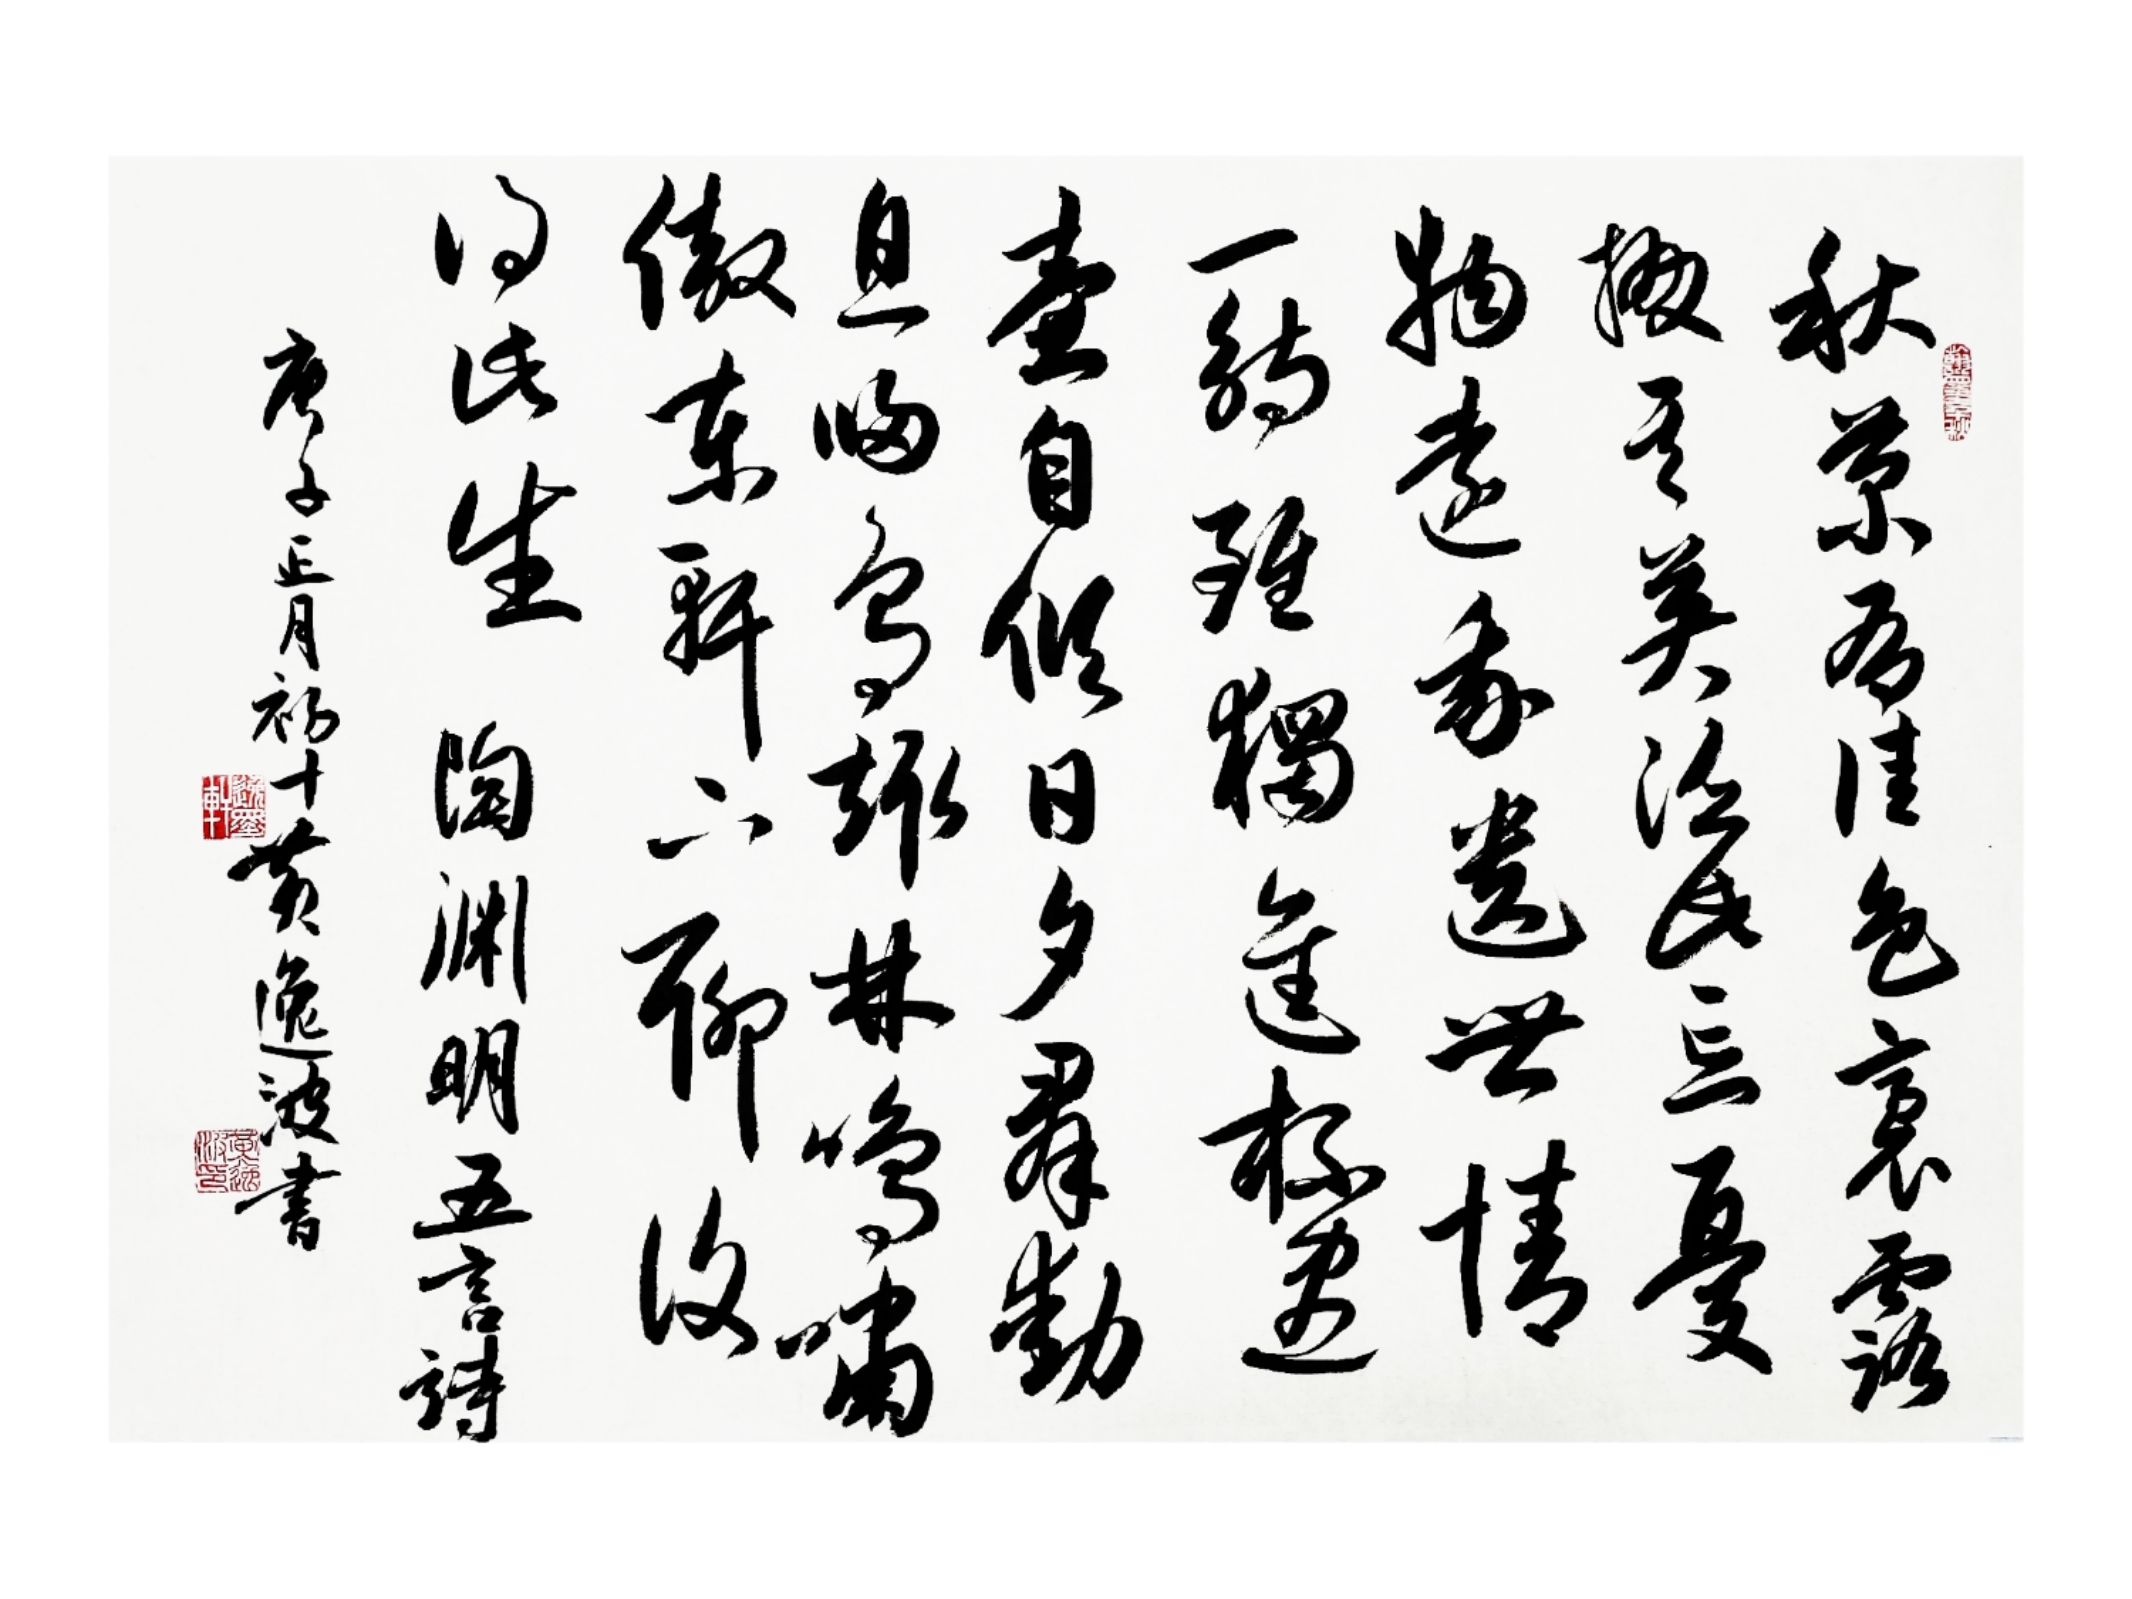 秋菊有佳色裛露
掇其英泛此忘憂
物遠我遺世情
一觴雖獨進杯盡
壺自傾日夕羣動
息歸鳥趨林鳴嘯
傲東軒下聊復
得此生 陶淵明五言詩
庚子正月初十黃逸波書
逸墨軒
黃逸波印